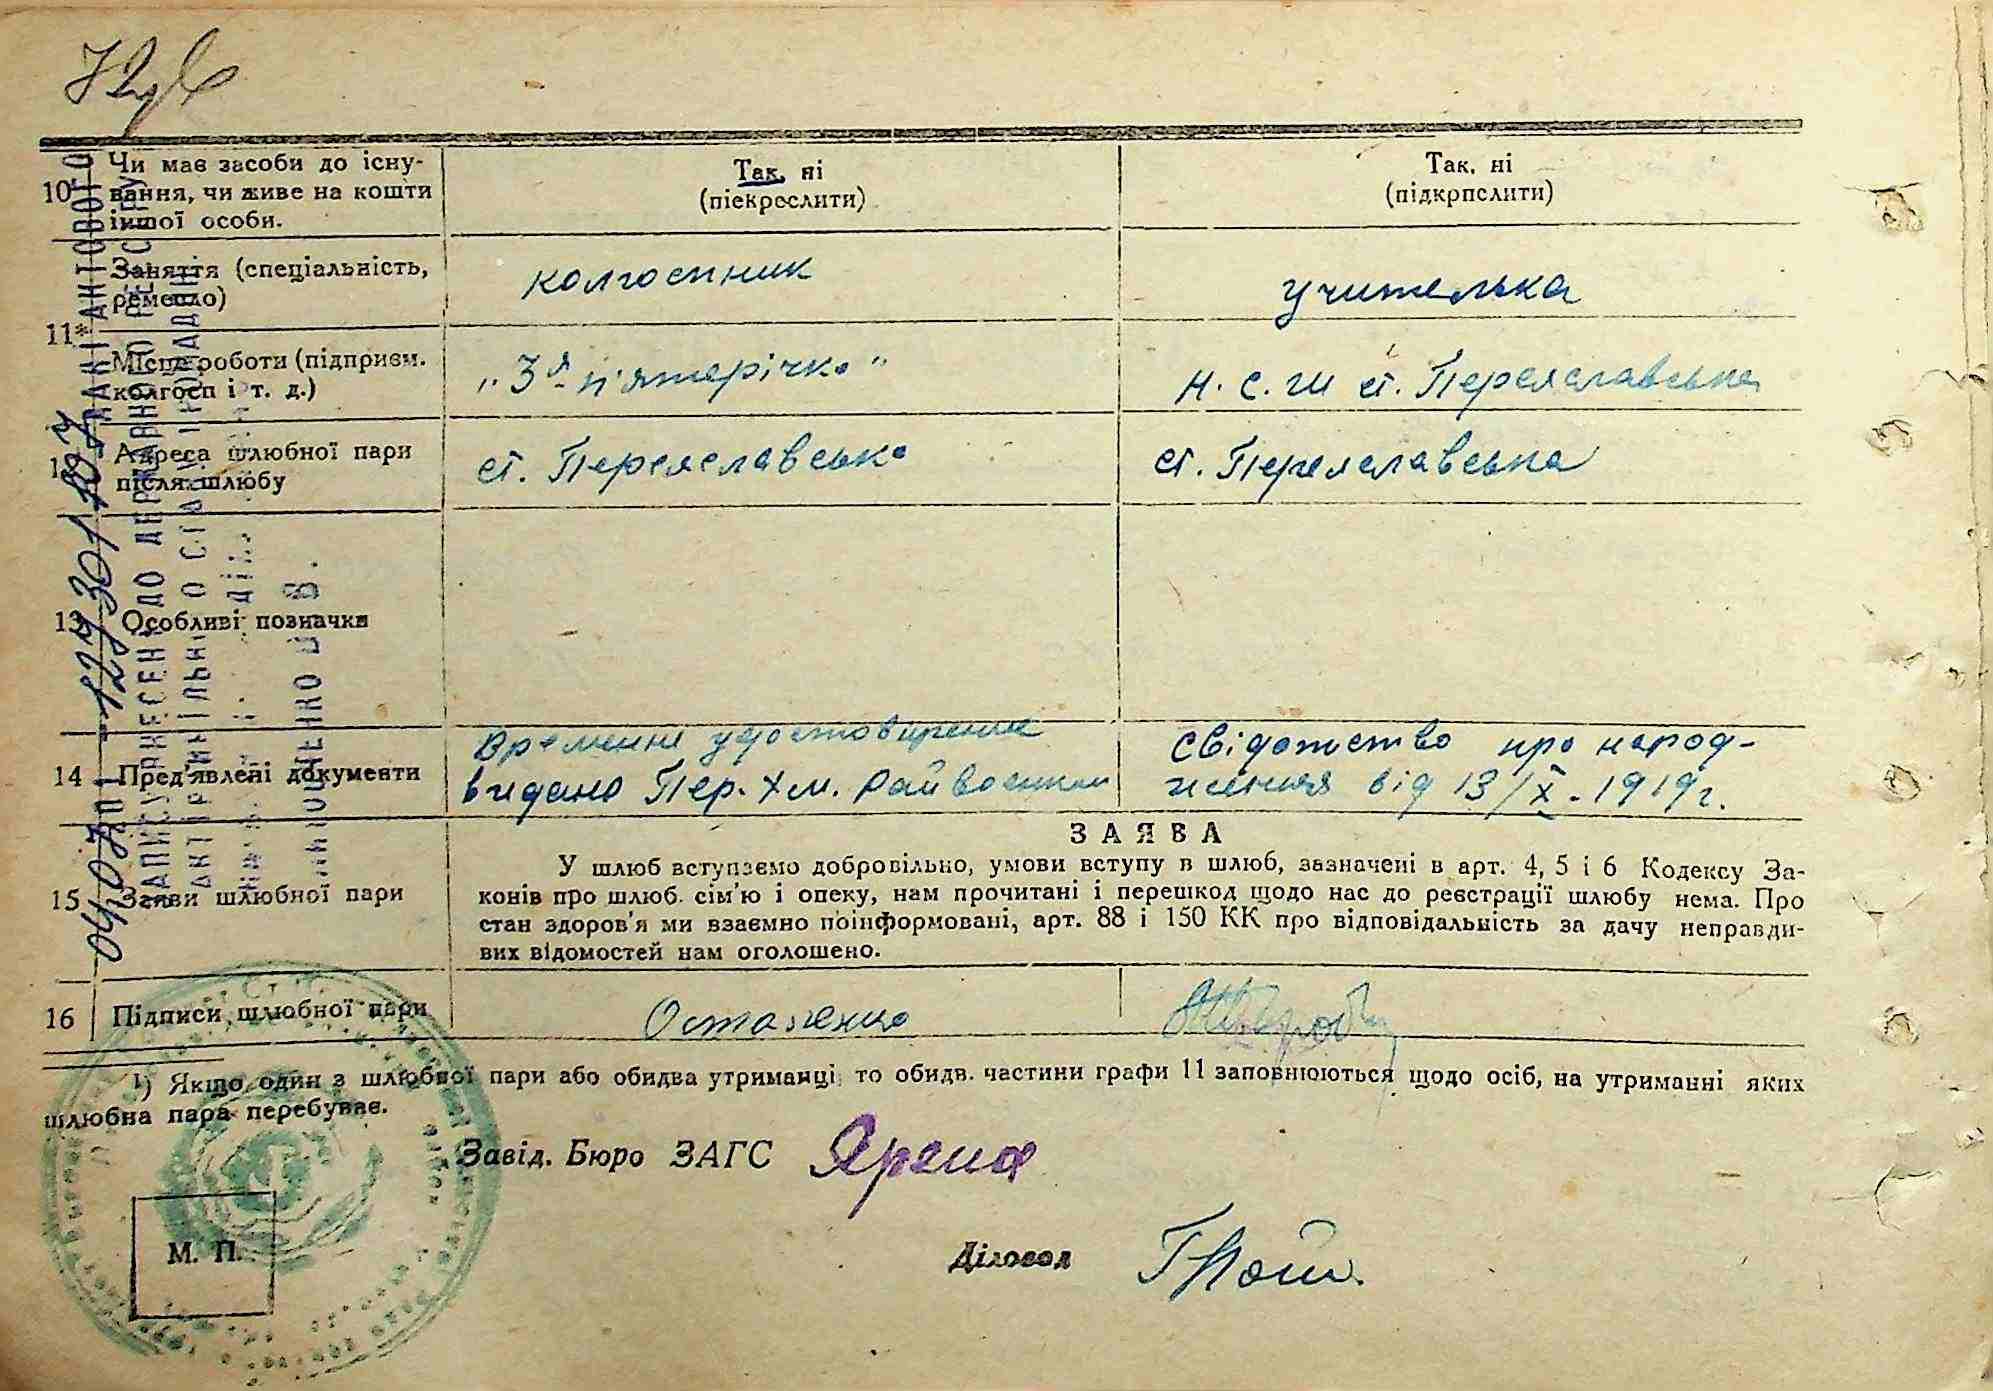 10
Чи має засоби до існу-
вання, чи живе на кошти
іншої особи.
Так, ні
(піекреслити)
Так, ні
(підкрпслити)
11*
Заняття (спеціальність,
ремесло)
колгоспник
учителька
Місце роботи (підприєм.
колгосп і т. д.)
„3я п'ятерічка"
н. с. ш ст. Переяславська
Адреса шлюбної пари
після шлюбу
ст. Переяславська
ст. Переяславська
13
Особливі позначки
14
Пред'явлені документи
Временне удостовирение
видано Пер. Хм. Райвоенком
свідотство про народ-
ження від 13/X. 1919г.
15
Заяви шлюбної пари
ЗАЯВА
У шлюб вступаємо добровільно, умови вступу в шлюб, зазначені в арт. 4, 5 і 6 Кодексу За-
конів про шлюб. сім'ю і опеку, нам прочитані і перешкод щодо нас до реєстрації шлюбу нема. Про
стан здоров'я ми взаємно поінформовані, арт. 88 і 150 КК про відповідальність за дачу неправди-
вих відомостей нам оголошено.
16
Підписи шлюбної пари
Остапенко
1) Якщо один з шлюбної пари або обидва утриманці, то обидв. частини графи 11 заповнюються щодо осіб, на утриманні яких
шлюбна пара перебуває.
Завід. Бюро ЗАГС
Діловод
М. П.